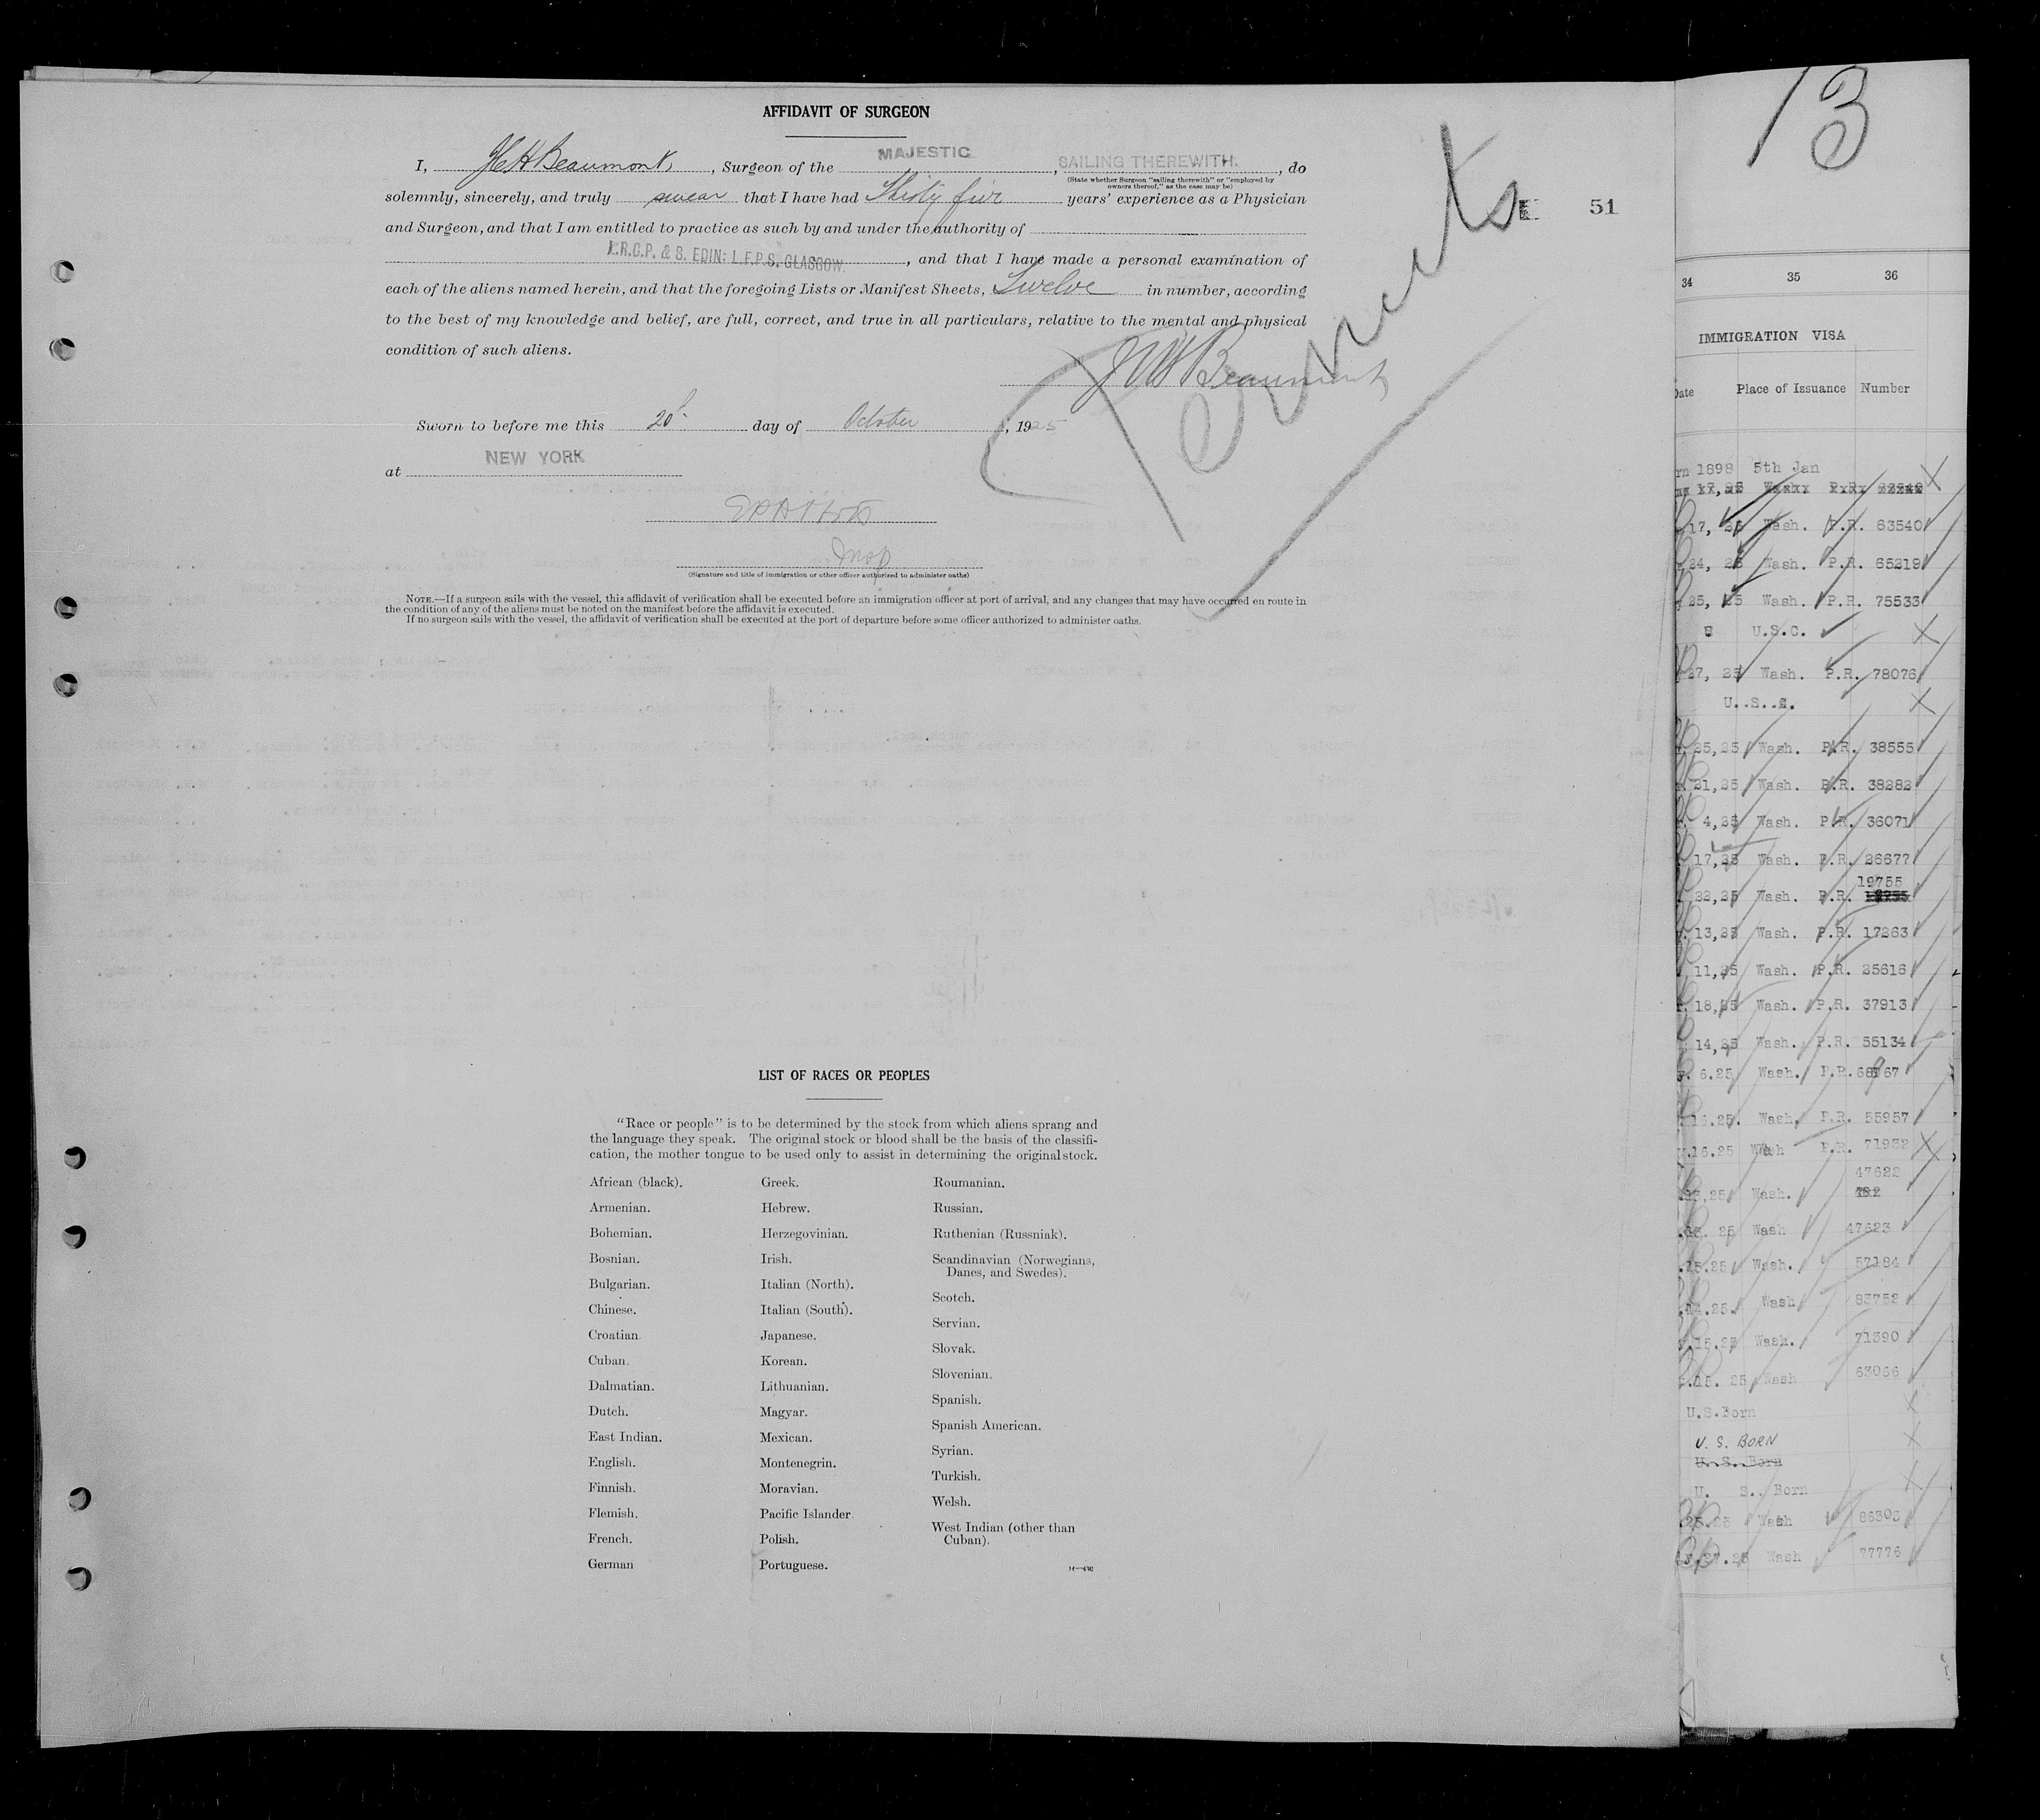 AFFIDAVIT OF SURGEON
I, JCH Beaumont, , Surgeon of the MAJESTIC , SAILING THEREWITH. , do
(State whether Surgeon "sailing therewith" or "employed by
owners thereof," as the case may be)
solemnly, sincerely, and truly swear that I have had Thirty five years' experience as a Physician
and Surgeon, and that I am entitled to practice as such by and under the authority of
L.R.C.P. & S. EDIN: L.F.P.S. GLASGOW. , and that I have made a personal examination of
each of the aliens named herein, and that the foregoing Lists or Manifest Sheets, Twelve in number, according
to the best of my knowledge and belief, are full, correct, and true in all particulars, relative to the mental and physical
condition of such aliens.
Beaumont
Sworn to before me this 20 day of October , 1925
at NEW YORK
Insp
(Signature and title of immigration or other officer authorized to administer oaths)
NOTE.—If a surgeon sails with the vessel, this affidavit of verification shall be executed before an immigration officer at port of arrival, and any changes that may have occurred en route in
the condition of any of the aliens must be noted on the manifest before the affidavit is executed.
If no surgeon sails with the vessel, the affidavit of verification shall be executed at the port of departure before some officer authorized to administer oaths.
51
LIST OF RACES OR PEOPLES
"Race or people" is to be determined by the stock from which aliens sprang and
the language they speak. The original stock or blood shall be the basis of the classifi-
cation, the mother tongue to be used only to assist in determining the original stock.
African (black).
Armenian.
Bohemian.
Bosnian.
Bulgarian.
Chinese.
Croatian.
Cuban.
Dalmatian.
Dutch.
East Indian.
English.
Finnish.
Flemish.
French.
German
Greek.
Hebrew.
Herzegovinian.
Irish.
Italian (North).
Italian (South).
Japanese.
Korean.
Lithuanian.
Magyar.
Mexican.
Montenegrin.
Moravian.
Pacific Islander.
Polish.
Portuguese.
Roumanian.
Russian.
Ruthenian (Russniak).
Scandinavian (Norwegians,
Danes, and Swedes).
Scotch.
Servian.
Slovak.
Slovenian.
Spanish.
Spanish American.
Syrian.
Turkish.
Welsh.
West Indian (other than
Cuban).
13
34 35 36
IMMIGRATION VISA
Date Place of Issuance Number
1898 5th Jan
17, 25 Wash. P.R. 63540
24, 25 Wash. P.R. 65219
25, 25 Wash. P.R. 75533
U.S.C.
27, 25 Wash. P.R. 78076
U.S.C.
25,25 Wash. P.R. 38555
21,25 Wash. P.R. 38282
4,25 Wash. P.R. 36071
17,25 Wash. P.R. 26677
22,25 Wash. P.R. 19755
13,25 Wash. P.R. 17263
11,25 Wash. P.R. 25616
18,25 Wash. P.R. 37913
14,25 Wash. P.R. 55134
6.25 Wash. P.R.
16.25. Wash, P.R. 55957
16.25 Wash P.R. 71932
25 Wash. 47622
25 Wash 47623
15.25 Wash. 57184
14.25. Wash 83752
15.25 Wash. 71390
15. 25 Wash 63066
U.S.Born
U. S. BORN
U. S. Born
U. S. Born
25.25 Wash 86303
27.25 Wash 77776